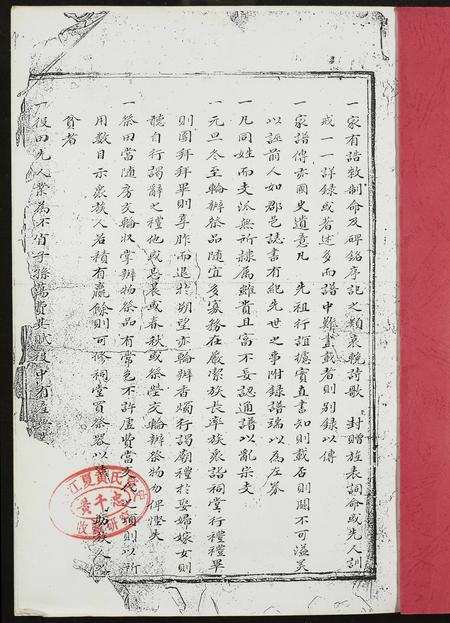 一家有誥敕制命及碑銘序記之類哀輓詩歌 封贈旌表詞命或先人訓
戒一一詳録或著述多而譜中難盡載者則别録以傳
一家譜傳亦國史遺意凡 先祖行誼據實直書知則載否則闕不可溢美
以誣前人如郡邑誌書有紀先世之事附録譜端以為左券
一凡同姓而支派無所隸屬雖貴且富不妄認通譜以亂宗支
一元旦冬至輪辦祭品随宜多寡務在嚴潔族長率族衆詣祠堂行禮禮畢
則團拜拜畢則享胙而退於朔望亦輪辦香燭行謁廟禮於娶婦嫁女則
聽自行謁辭之禮他或忌晨或春秋或祭塋交輪辦祭物勿俾慳失
一祭田當随房交輪收掌辦物祭品有常色不許虛費當交之頃則以所
用數目示衆族人若積有羸餘則可修祠堂買祭器以 助族人
貧者
一役田先人業為不肖子孫蕩費其賦役中有
江夏黄氏
黄千志
收藏研究